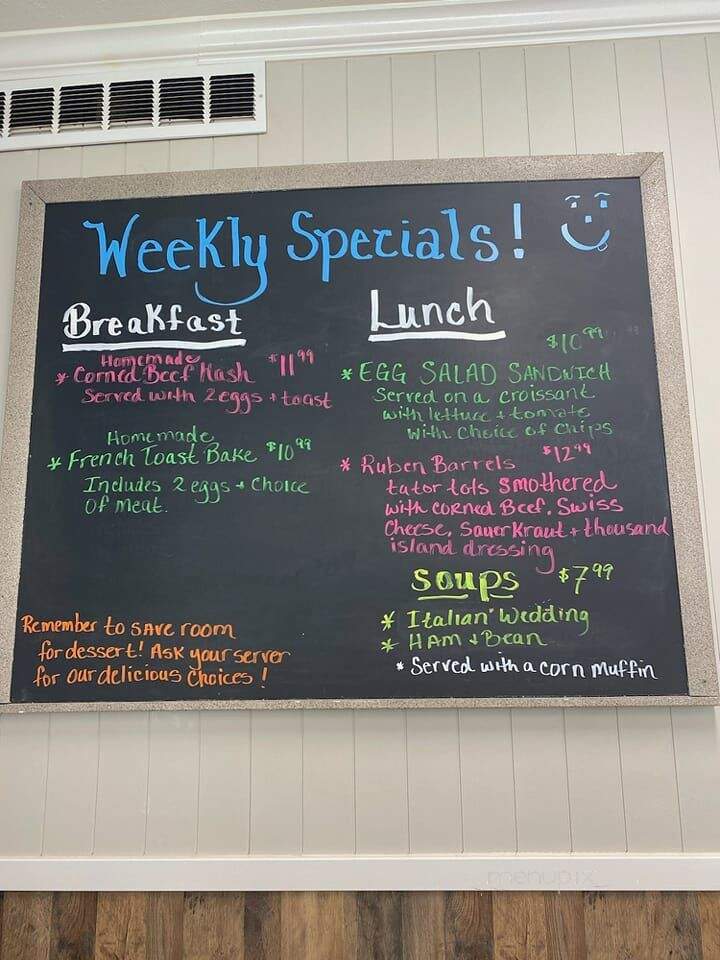 Weekly Specials!
Breakfast
Homemade
* Corned Beef Hash $11.99
Served with 2 eggs + toast
Homemade
* French Toast Bake $10.99
Includes 2 eggs + Choice
Of Meat.
Remember to SAVE room
for dessert! ASK your server
for our delicious Choices!
Lunch
$10.99
* EGG SALAD SANDWICH
Served on a croissant
with lettuce + tomato
with Choice of Chips
* Ruben Barrels $12.99
tator tots smothered
with corned Beef, Swiss
Cheese, SauerKraut + thousand
island dressing
Soups $7.99
* Italian Wedding
* HAM + Bean
* Served with a corn muffin
menupix